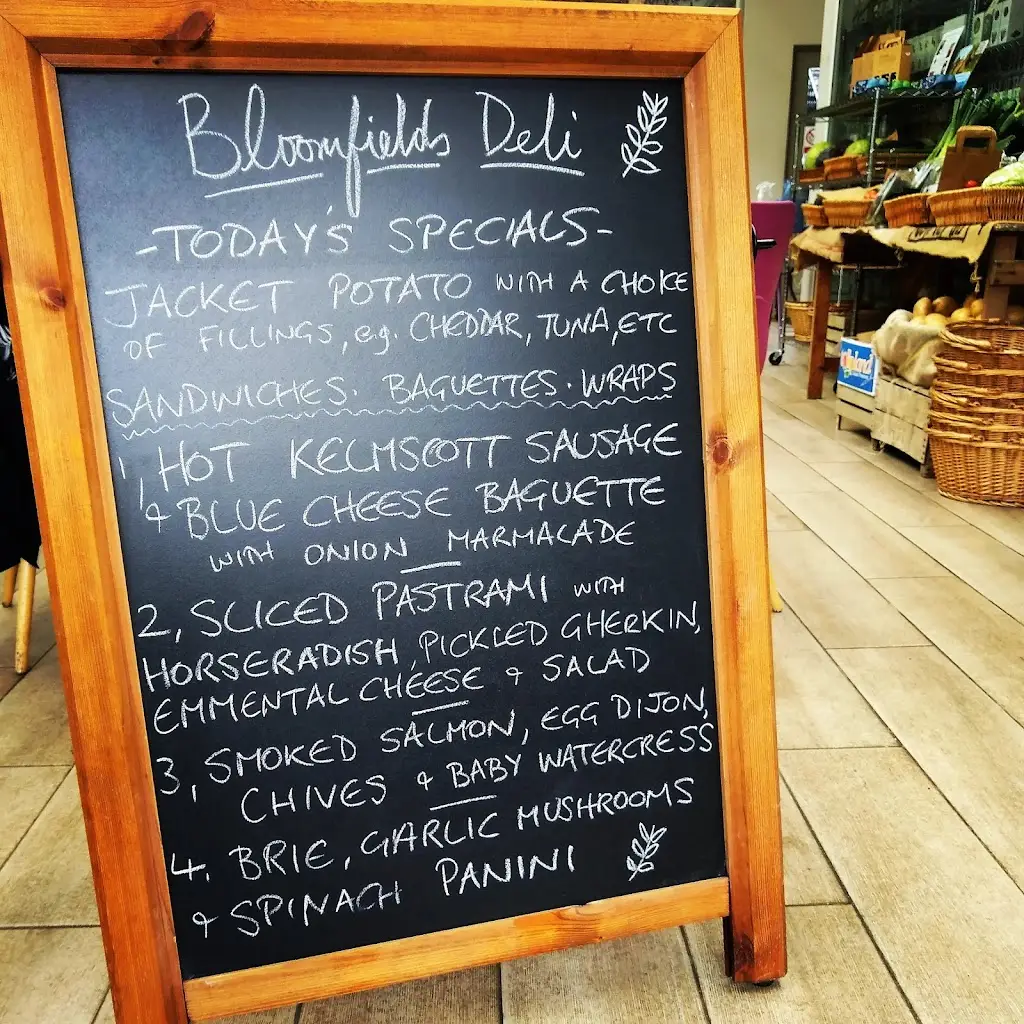 Bloomfields Deli
-TODAY'S SPECIALS-
JACKET POTATO WITH A CHOICE
OF FILLINGS, e.g. CHEDDAR, TUNA, ETC
SANDWICHES. BAGUETTES. WRAPS
1, HOT KELMSCOTT SAUSAGE
& BLUE CHEESE BAGUETTE
WITH ONION MARMALADE
2, SLICED PASTRAMI WITH
HORSERADISH, PICKLED GHERKIN,
EMMENTAL CHEESE & SALAD
3, SMOKED SALMON, EGG DIJON,
CHIVES & BABY WATERCRESS
4. BRIE, GARLIC MUSHROOMS
& SPINACH PANINI